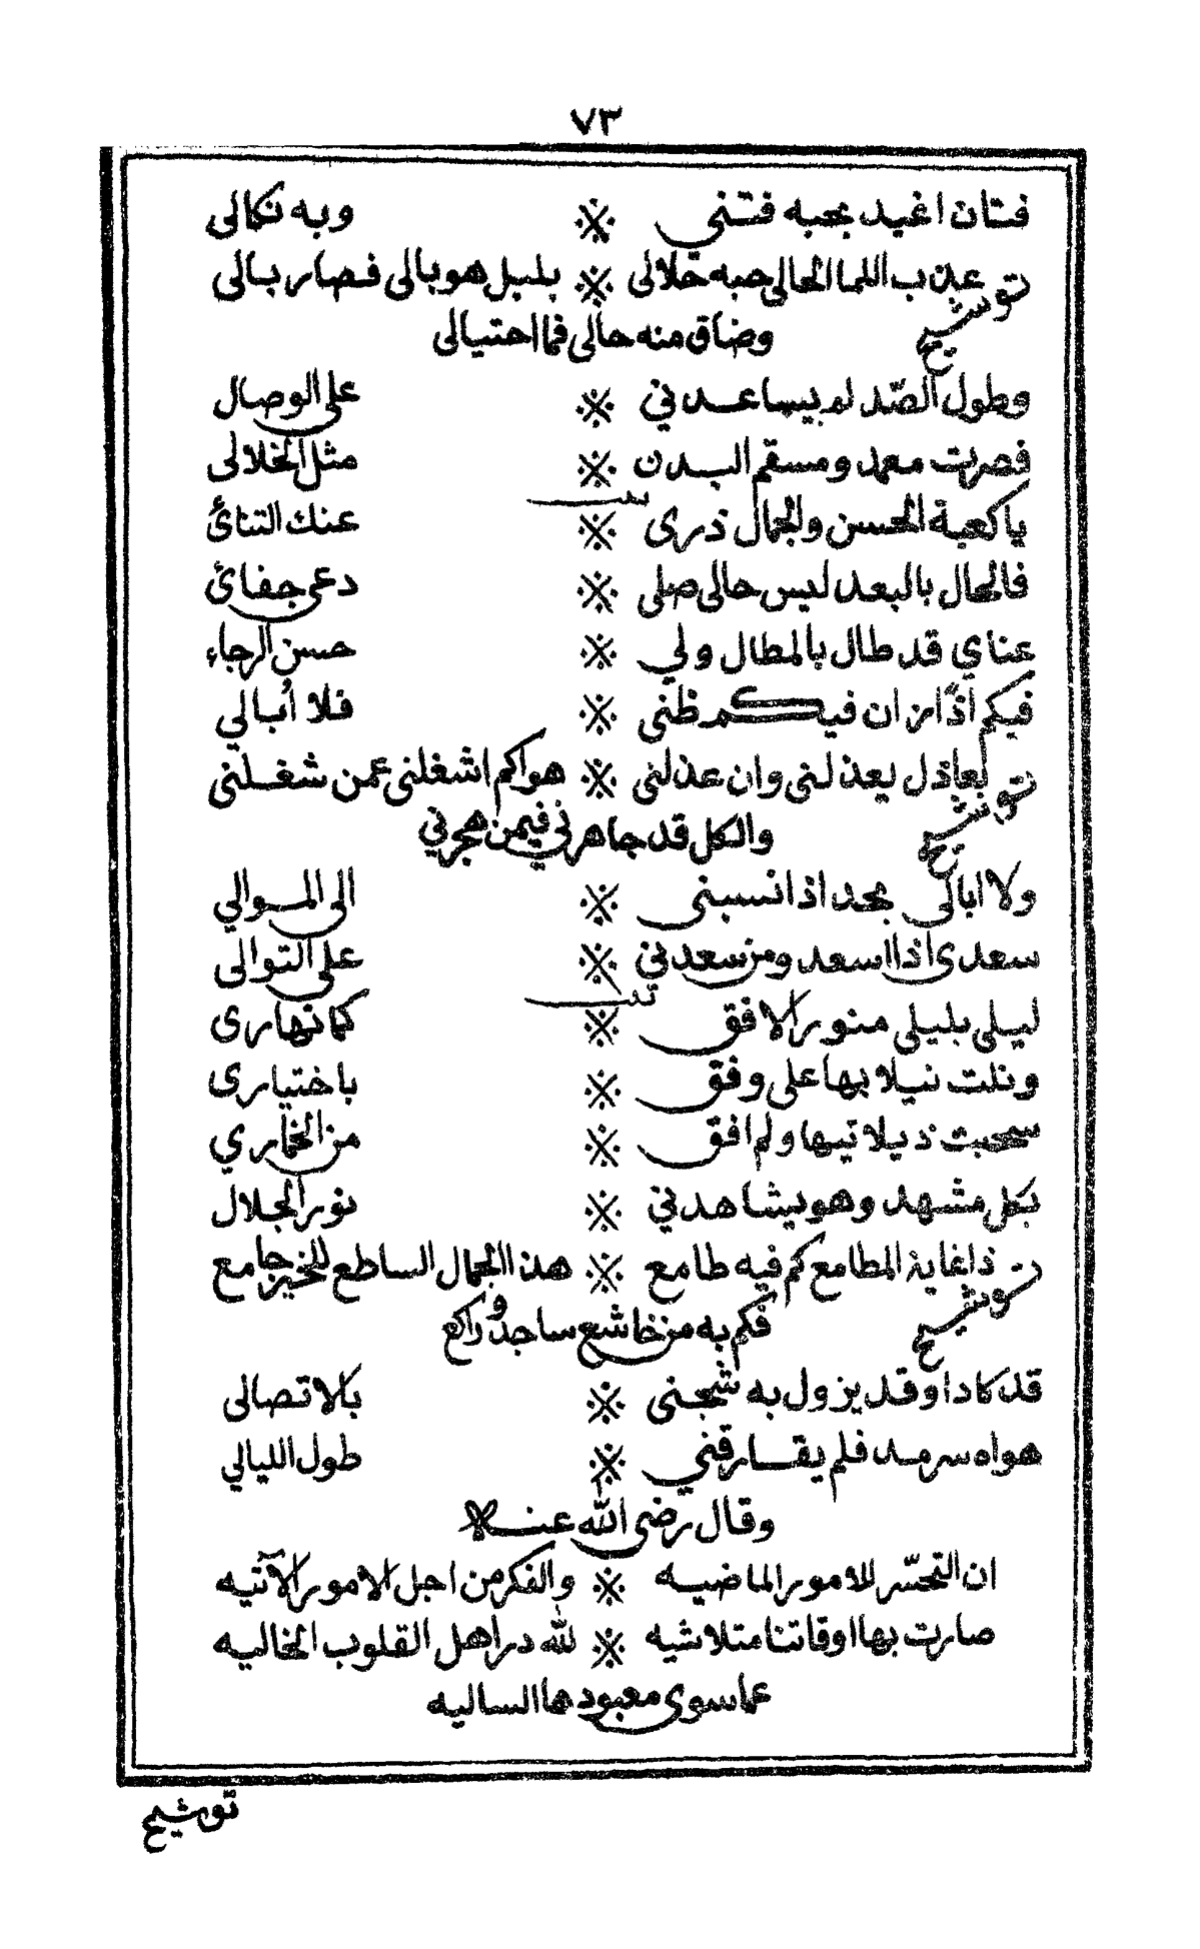 ٧٣
فتان اغيد بحبه فتني ※ وبه نكالى
توشيح عذب اللما الحالى حبه حلالى ※ بلبل هو بالى فصار بالى
وضاق منه حالى فما احتيالى
وطول الصّد لم يساعدني ※ على الوصال
فصرت معهد ومسقم البدن ※ مثل الخلالى
بيت
ياكعبة الحسن والجمال ذرى ※ عنك التنائ
فالحال بالبعد ليس حالى صلى ※ دعى جفائ
عناي قد طال بالمطال ولي ※ حسن الرجاء
فيكم اذًا ان فيكم ظنى ※ فلا أبالي
توشيح لعاذل يعذلنى وان عذلنى ※ هواكم اشغلنى عمن شغلنى
والكل قد جاهرني فيمن هجرني
ولا ابالى بمجد اذا نسبنى ※ الى الموالي
سعدى اذا اسعد ومن سعدني ※ على التوالى
بيت
ليلى بليلى منور الافق ※ كما نهارى
ونلت نيلا بها على وفق ※ باختيارى
سحبت ذيلا تيها ولم افق ※ من الخماري
بكل مشهد وهو يشاهدني ※ نور الجلال
توشيح ذا غاية المطامع كم فيه طامع ※ هذا الجمال الساطع للخير جامع
فكم به من خاشع ساجد وراكع
قد كاد اوقد يزول به شجنى ※ بالاتصالى
هواه سرمد فلم يفارقني ※ طول الليالي
وقال رضى الله عنه
ان التحسّر للامور الماضيه ※ والفكر من اجل الامور الآتيه
صارت بها اوقاتنا متلاشيه ※ لله در اهل القلوب الخاليه
عما سوى معبودها الساليه
توشيح